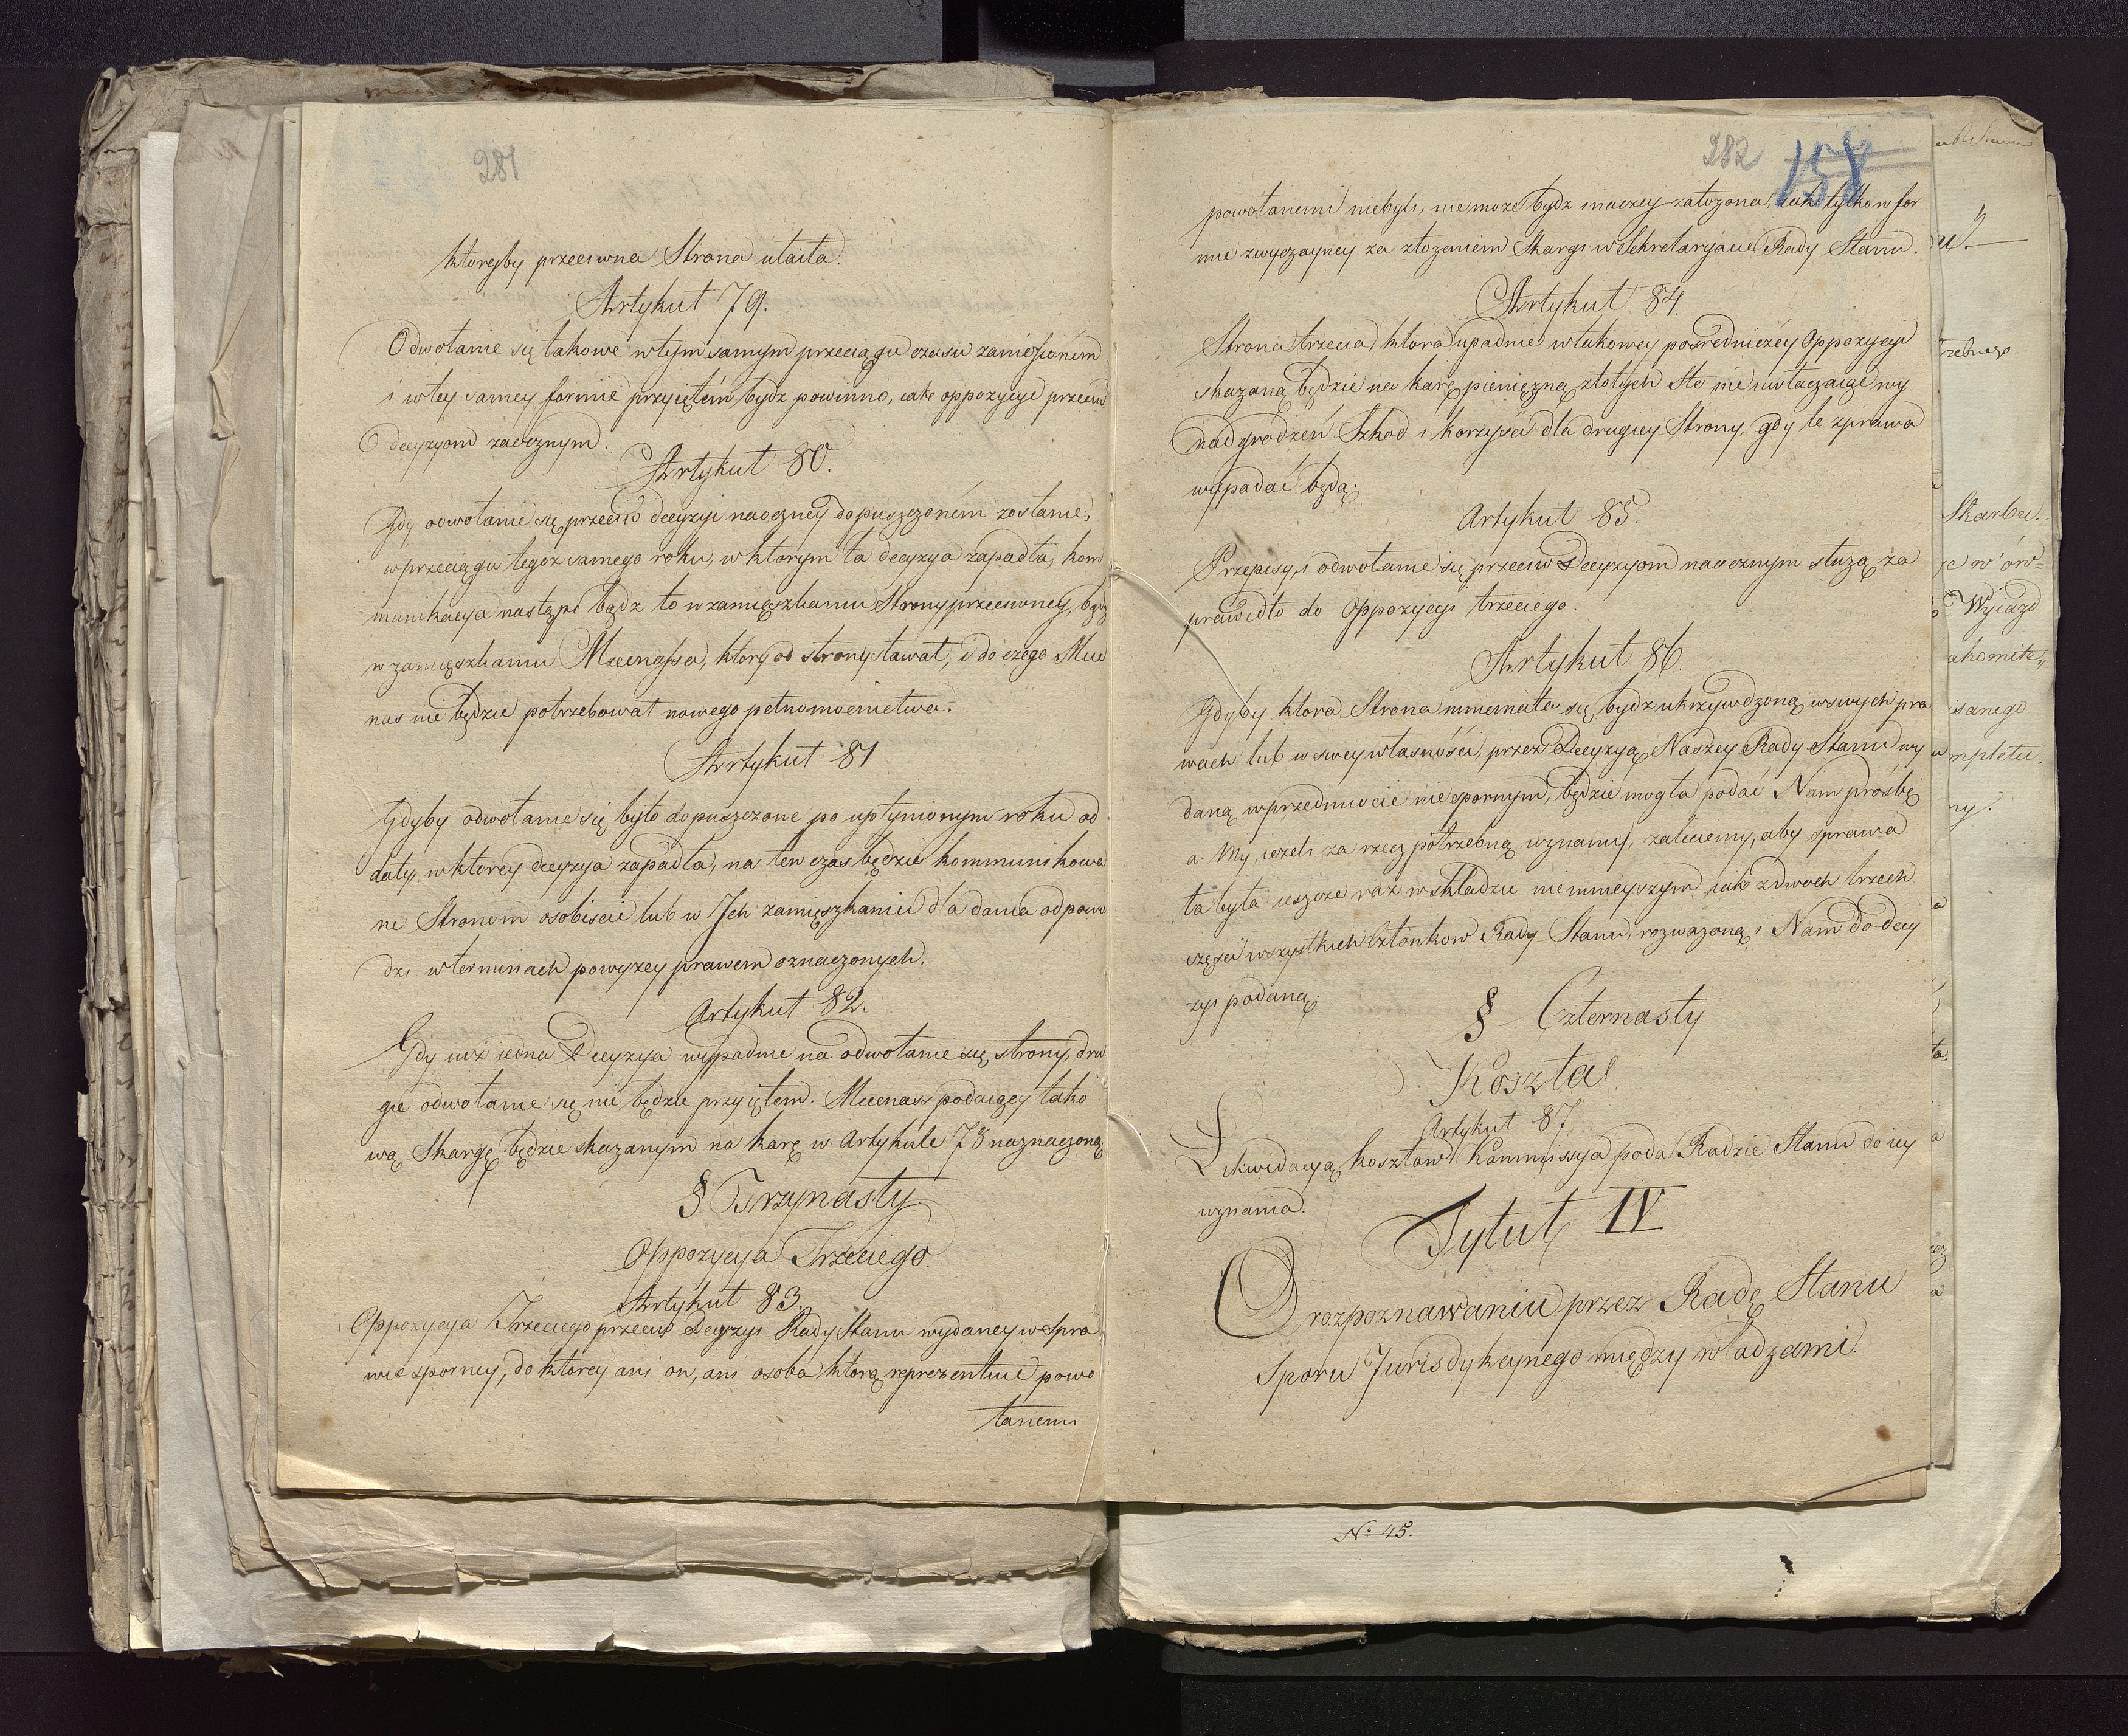 281
ktoreyby przeciwna Strona utaiła.
Artykuł 79.
Odwołanie się takowe w tym samym przeciągu czasu zaniesionem
i w tey samey formie przyiętém bydz powinno, iak oppozycye przeciw
decyzyom zaocznym.
Artykuł 80.
Gdy odwołanie się przeciw decyzyi naoczney dopuszczoném zostanie,
w przeciągu tegoż samego roku, w ktorym ta decyzya zapadła, kom
munikacya nastąpi bądz to w zamięszkaniu Strony przeciwney, bądz
w zamięszkaniu Mecenassa, ktory od strony stawał, i do czego Mece
nas nie będzie potrzebował nowego pełnomocnictwa.
Artykuł 81
Gdyby odwołanie się było dopuszczone po upłynionym roku od
daty, w ktorey decyzya zapadła, na ten czas będzie kommunikowa
ne Stronom osobiscie lub w Ich zamięszkaniu dla dania odpowie
dzi w terminach powyzey prawem oznaczonych.
Artykuł 82.
Gdy iuż iedna Decyzya wypadnie na odwołanie się strony, dru
gie odwołanie się nie będzie przyiętem. Mecenass podaiący tako
wą Skargę będzie skazanym na karę w Artykule 78 naznaczoną
§ Trzynasty
Oppozycya Trzeciego
Artykuł 83.
Oppozycya Trzeciego przeciw Decyzyi Rady Stanu wydaney w Spra
wie sporney, do ktorey ani on, ani osoba ktorą reprezentuie powo
łanemi
282 158
powołanemi niebyli, nie moze bydz inaczey założona, iak tylko w for
mie zwyczayney za złożeniem Skargi w Sekretaryacie Rady Stanu.
Artykuł 84.
Strona trzecia ktora upadnie w takowey posredniczey Oppozycyi
skazaną będzie na karę pieniężną złotych Sto nie uwłaczaiąc wy
nadgrodzeń Szkod i korzyści dla drugiey Strony, gdy te zprawa
wypadać będą.
Artykuł 85.
Przepisy, i odwołanie się przeciw Decyzyom naocznym służą za
prawidło do Oppozycyi trzeciego.
Artykuł 86.
Gdyby ktora Strona mniemała się bydz ukrzywdzoną w swych pra
wach lub w swey własności, przez Decyzyą Naszey Rady Stanu wy
daną w przedmiocie nie spornym, będzie mogła podać Nam prośbę
a. My, ieżeli za rzecz potrzebną uznamy, zalecemy, aby sprawa
ta była ieszcze raz w składzie niemnieyszym iak z dwoch trzech
części wszystkich Członkow Rady Stanu, rozważoną i Nam do decy
zyi podaną.
§ Czternasty
Koszta
Artykuł 87.
Likwidacyą kosztow Kommissya poda Radzie Stanu do iey
uznania.
Tytuł IV
O rozpoznawaniu przez Radę Stanu
Sporu Jurisdykcynego między władzami.
Skarbu.
Wyiazd
No 45.